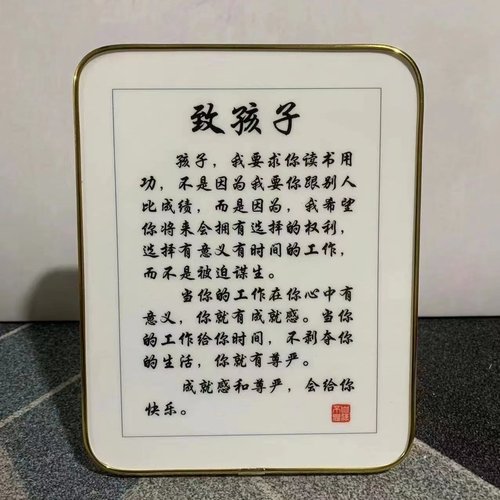 致孩子
孩子，我要求你读书用
功，不是因为我要你跟别人
比成绩，而是因为，我希望
你将来会拥有选择的权利，
选择有意义有时间的工作，
而不是被迫谋生。
当你的工作在你心中有
意义，你就有成就感。当你
的工作给你时间，不剥夺你
的生活，你就有尊严。
成就感和尊严，会给你
快乐。